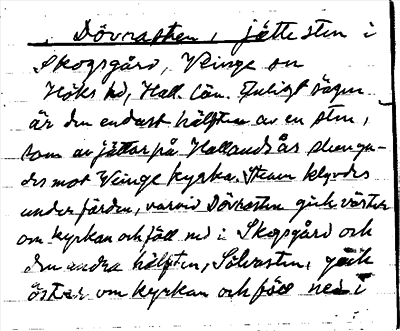 Dövrasten, jättesten i
Skogsgård, Veinge sn
Höks hd, Hall. län. Enligt sägen
är den endast hälften av en sten,
som av jättar på Hallandsås slunga-
des mot Veinge kyrka. Stenen klyvdes
under färden, varvid Dövrasten gick väster
om kyrkan och föll ned i Skogsgård och
den andra hälften, Sölvasten, gick
öster om kyrkan och föll ned i